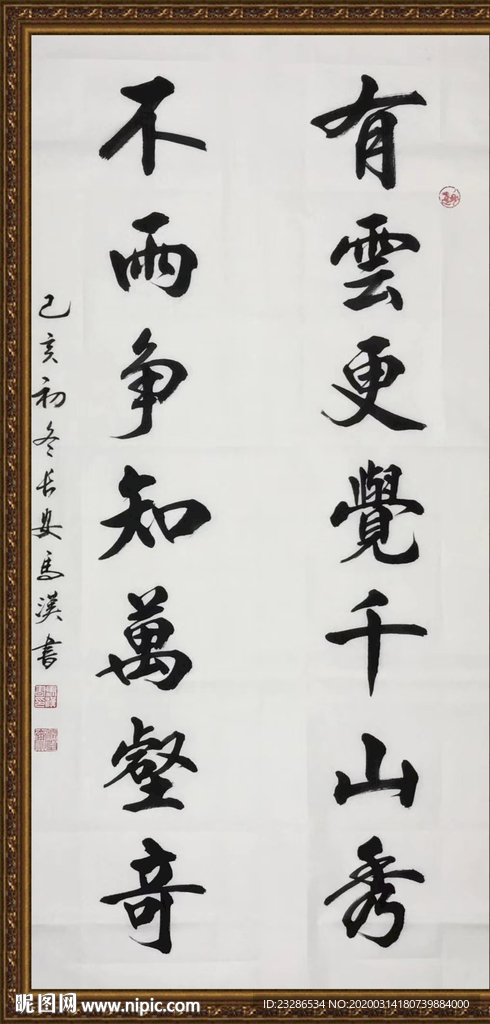 有雲更覺千山秀
不雨争知萬壑奇
己亥初冬长安馬漢書
昵图网 www.nipic.com
ID:23286534 NO:20200314180739884000